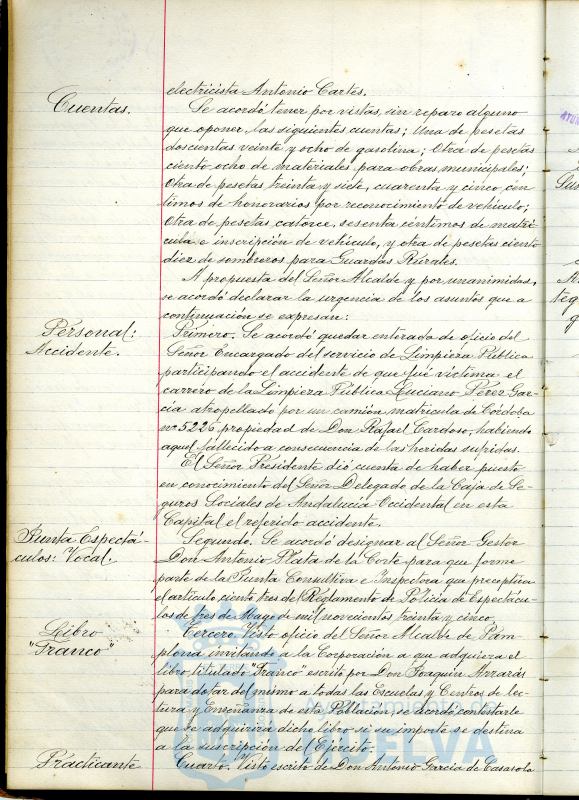 electricista Antonio Cartes.
Cuentas.
Se acordó tener por vistas, sin reparo alguno
que oponer, las siguientes cuentas; Una de pesetas
doscientas veinte y ocho de gasolina; Otra de pesetas
ciento ocho de materiales para obras municipales;
Otra de pesetas treinta y siete, cuarenta y cinco cén
timos de honorarios por reconocimiento de vehículo;
Otra de pesetas catorce, sesenta céntimos de matrí
cula e inscripción de vehículo, y otra de pesetas ciento
diez de sombreros para Guardas Rurales.
A propuesta del Señor Alcalde y por unanimidad,
se acordó declarar la urgencia de los asuntos que a
continuación se expresan:
Personal:
Accidente.
Primero. Se acordó quedar enterado de oficio del
Señor Encargado del servicio de Limpieza Pública
participando el accidente de que fué víctima el
carrero de la Limpieza Pública Luciano Pérez Gar-
cía atropellado por un camión matrícula de Córdoba
nº 5226 propiedad de Don Rafael Cardoso, habiendo
aquel fallecido a consecuencia de las heridas sufridas.
El Señor Presidente dió cuenta de haber puesto
en conocimiento del Señor Delegado de la Caja de Se-
guros Sociales de Andalucía Occidental en esta
Capital el referido accidente.
Junta Espectá-
culos: Vocal.
Segundo. Se acordó designar al Señor Gestor
Don Antonio Plata de la Corte para que forme
parte de la Junta Consultiva e Inspectora que preceptúa
el artículo ciento tres del Reglamento de Policía de Espectácu-
los de tres de Mayo de mil novecientos treinta y cinco.
Libro
"Franco"
Tercero. Visto oficio del Señor Alcalde de Pam-
plona invitando a la Corporación a que adquiera el
libro titulado "Franco" escrito por Don Joaquín Arrarás
para dotar del mismo a todas las Escuelas y Centros de lec-
tura y Enseñanza de esta Población, se acordó contestarle
que se adquirirá dicho libro si su importe se destina
a la suscripción del Ejército.
Practicante
Cuarto. Visto escrito de Don Antonio García de Casasola
Ayuntamiento de
HUELVA